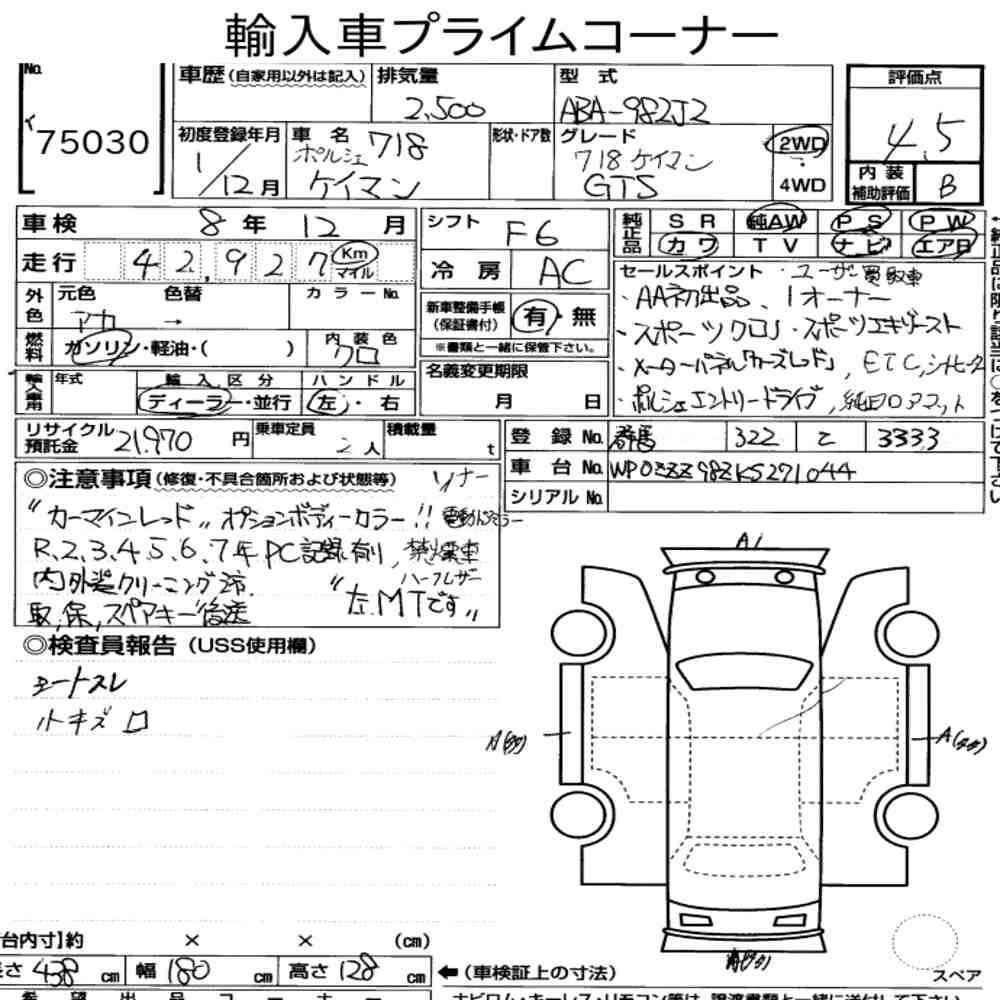 輸入車プライムコーナー
No. 75030
車歴(自家用以外は記入) 排気量 2,500 型式 ABA-982J2 評価点 4.5
初度登録年月 1/12月 車名 ポルシェ 718 ケイマン 形状・ドア数 グレード 718ケイマン GTS 2WD・4WD 内装補助評価 B
車検 8年 12月 シフト F6 純正品 SR 純AW PS PW
走行 42,927 Km マイル 冷房 AC カワ TV ナビ エアB
外色 元色 アカ 色替 → カラーNo. 新車整備手帳(保証書付) 有・無
燃料 ガソリン・軽油・( ) 内装色 クロ ※書類と一緒に保管下さい。
輸入車用 年式 輸入区分 ディーラー・並行 ハンドル 左・右 名義変更期限 月 日
セールスポイント ・ユーザー買取車
・AA初出品、1オーナー
・スポーツクロノ・スポーツエキゾースト
・メーターパネル「カーズレッド」, ETC, シートヒーター
・ポルシェエントリードライブ, 純正フロアマット
リサイクル預託金 21,970円 乗車定員 2人 積載量 t
登録No. 群馬 322 そ 3333
車台No. WP0ZZZ98ZKS271044
シリアルNo.
◎注意事項(修復・不具合箇所および状態等) ソナー
"カーマインレッド" オプションボディーカラー!! 電動ドアミラー
R.2.3.4.5.6.7年PC記録有り, 禁煙車
内外装クリーニング済. ハーフレザー
取,保,スペアキー後送 "左.MTです"
◎検査員報告(USS使用欄)
シートスレ
小キズ ロ
A1
A(多多)
A(多多)
台内寸】約 × × (cm)
長さ 438cm 幅 180cm 高さ 128cm ←(車検証上の寸法)
スペア
希望出品コーナー
ナビロム・キーレス・リモコン等は、譲渡書類と一緒に送付して下さい